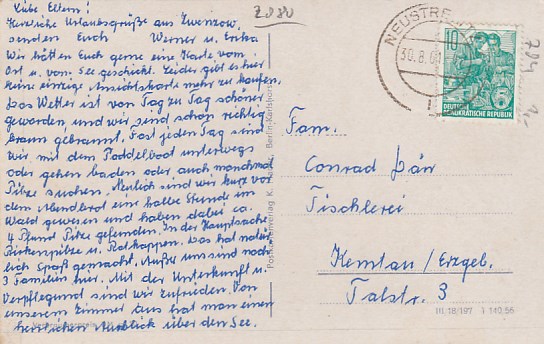 Liebe Eltern!
Herzliche Urlaubsgrüße aus Zwenzow,
senden Euch Werner u. Erika
Wir hätten Euch gerne eine Karte vom
Ort u. vom See geschickt. Leider gibt es hier
keine einzige Ansichtskarte mehr zu kaufen.
Das Wetter ist von Tag zu Tag schöner
geworden, und wir sind schon richtig
braun gebrannt. Fast jeden Tag sind
wir mit dem Paddelboot unterwegs
oder gehen baden oder auch manchmal
Pilze suchen. Neulich sind wir kurz vor
dem Abendbrot eine halbe Stunde im
Wald gewesen und haben dabei ca.
4 Pfund Pilze gefunden. In der Hauptsache
Birkenpilze u. Rotkappen. Das hat natür
lich Spaß gemacht. Außer uns sind noch
3 Familien hier. Mit der Unterkunft u.
Verpflegung sind wir zufrieden. Von
unserem Zimmer aus hat man einen
herrlichen Ausblick über den See.
Postkartenverlag K. Berlin-Karlshorst
NEUSTRELITZ
30.8.60
10
DEUTSCHE
DEMOKRATISCHE REPUBLIK
Fam.
Conrad Bär
Tischlerei
Kemtau/Erzgeb.
Talstr. 3
III/18/197 I 140 56